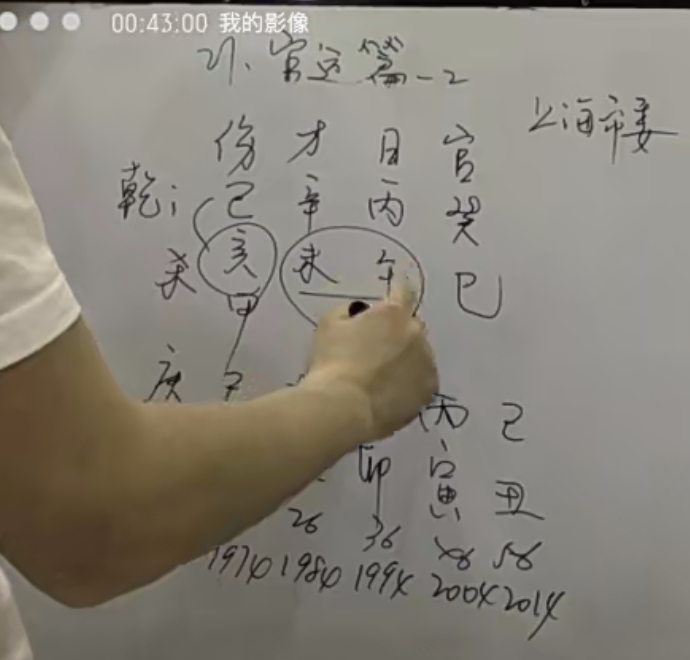 00:43:00 我的影像
21、官运篇-2
上海市委
伤 才 日 官
乾; 己 辛 丙 癸
杀 亥 未 午 巳
甲
庚 丙 己
卯 寅 丑
26 36 46 56
1974 1984 1994 2004 2014